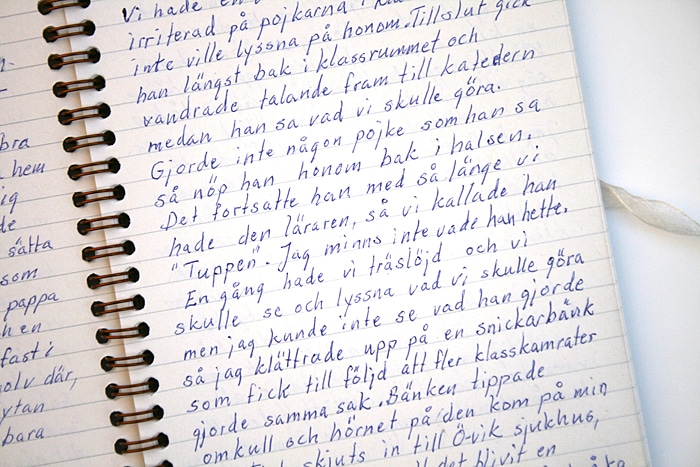 bra
hem
sätta
som
pappa
fast i
där,
ytan
bara
Vi hade en
irriterad på pojkarna i
inte ville lyssna på honom. Tillslut gick
han längst bak i klassrummet och
vandrade talande fram till katedern
medan han sa vad vi skulle göra.
Gjorde inte någon pojke som han sa
så nöp han honom bak i halsen.
Det fortsatte han med så länge vi
hade den läraren, så vi kallade han
"Tuppen". Jag minns inte vade han hette.
En gång hade vi träslöjd och vi
skulle se och lyssna vad vi skulle göra
men jag kunde inte se vad han gjorde
så jag klättrade upp på en snickarbänk
som fick till följd att fler klasskamrater
gjorde samma sak. Bänken tippade
omkull och hörnet på den kom på min
skjuts in till Ö-vik sjukhus,
det blivit en